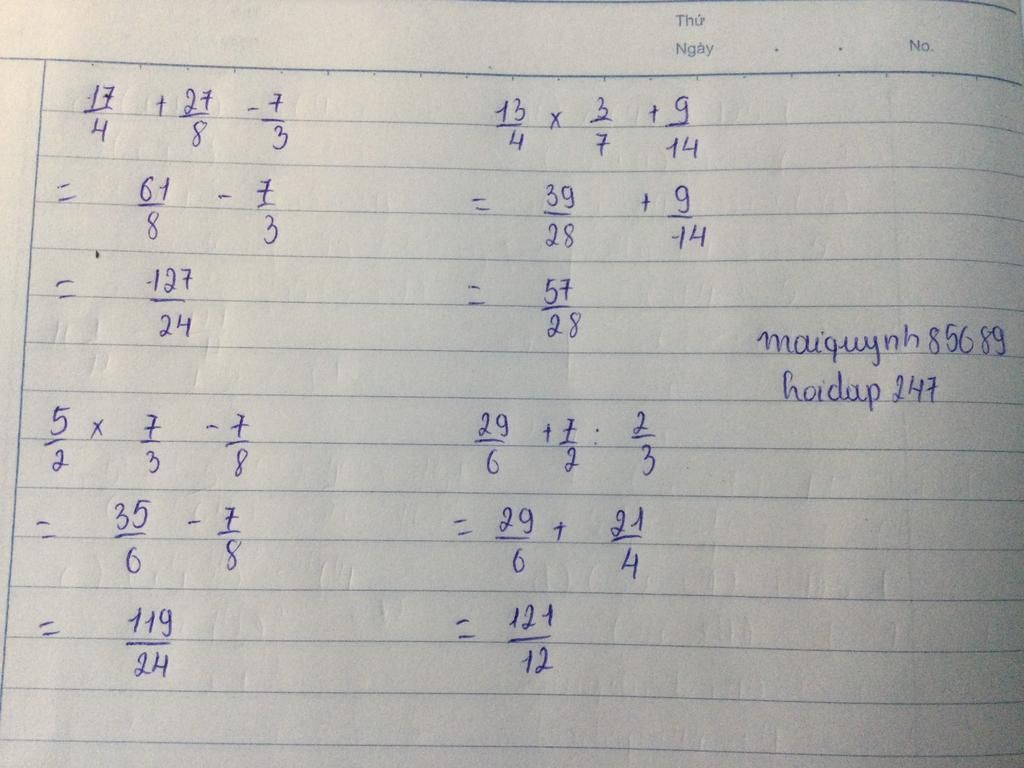 Thứ
Ngày . . No.
17/4 + 27/8 - 7/3
= 61/8 - 7/3
= 127/24
13/4 x 3/7 + 9/14
= 39/28 + 9/14
= 57/28
maiquynh85689
hoidap 247
5/2 x 7/3 - 7/8
= 35/6 - 7/8
= 119/24
29/6 + 7/2 : 2/3
= 29/6 + 21/4
= 121/12